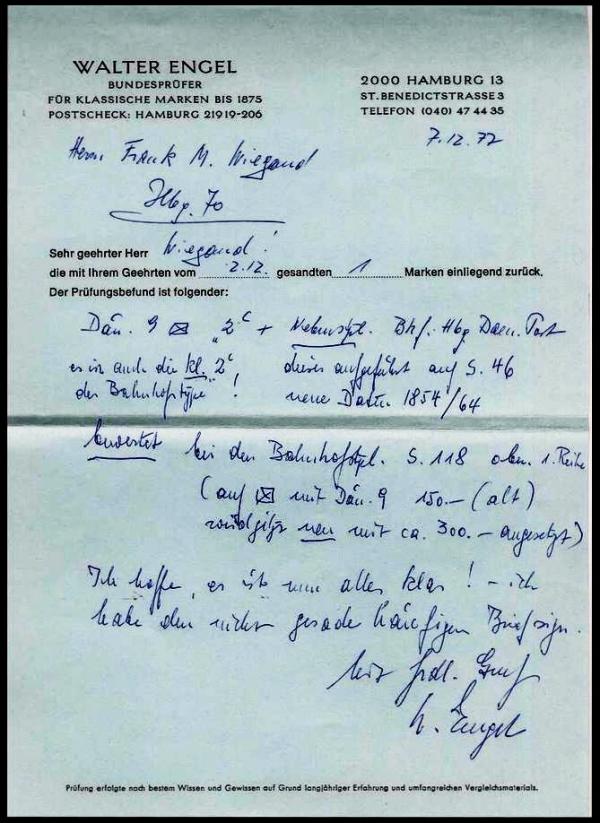 WALTER ENGEL
BUNDESPRÜFER
FÜR KLASSISCHE MARKEN BIS 1875
POSTSCHECK: HAMBURG 21919-206
2000 HAMBURG 13
ST. BENEDICTSTRASSE 3
TELEFON (040) 47 44 35
7.12.77
Herrn Frank M. Wiegand
Hbg. 70
Sehr geehrter Herr Wiegand!
die mit Ihrem Geehrten vom 2.12. gesandten 1 Marken einliegend zurück.
Der Prüfungsbefund ist folgender:
Dän. 9 "2c + Nebenstpl. Bhf. Hbg Daen. Post
es ist auch die kl. 2c, dieser aufgeführt auf S. 46
der Bahnhofstype"! neue Daten 1854/64
bewertet bei den Bahnhofstpl. S. 118 oben 1. Reihe
(auf mit Dän. 9 150.- (alt)
neu mit ca. 300.- angesetzt)
Ich hoffe, es ist nun alles klar! - ich
habe den nicht gerade häufigen Brief sign.
Mit frdl. Gruß
W. Engel
Prüfung erfolgte nach bestem Wissen und Gewissen auf Grund langjähriger Erfahrung und umfangreichen Vergleichsmaterials.